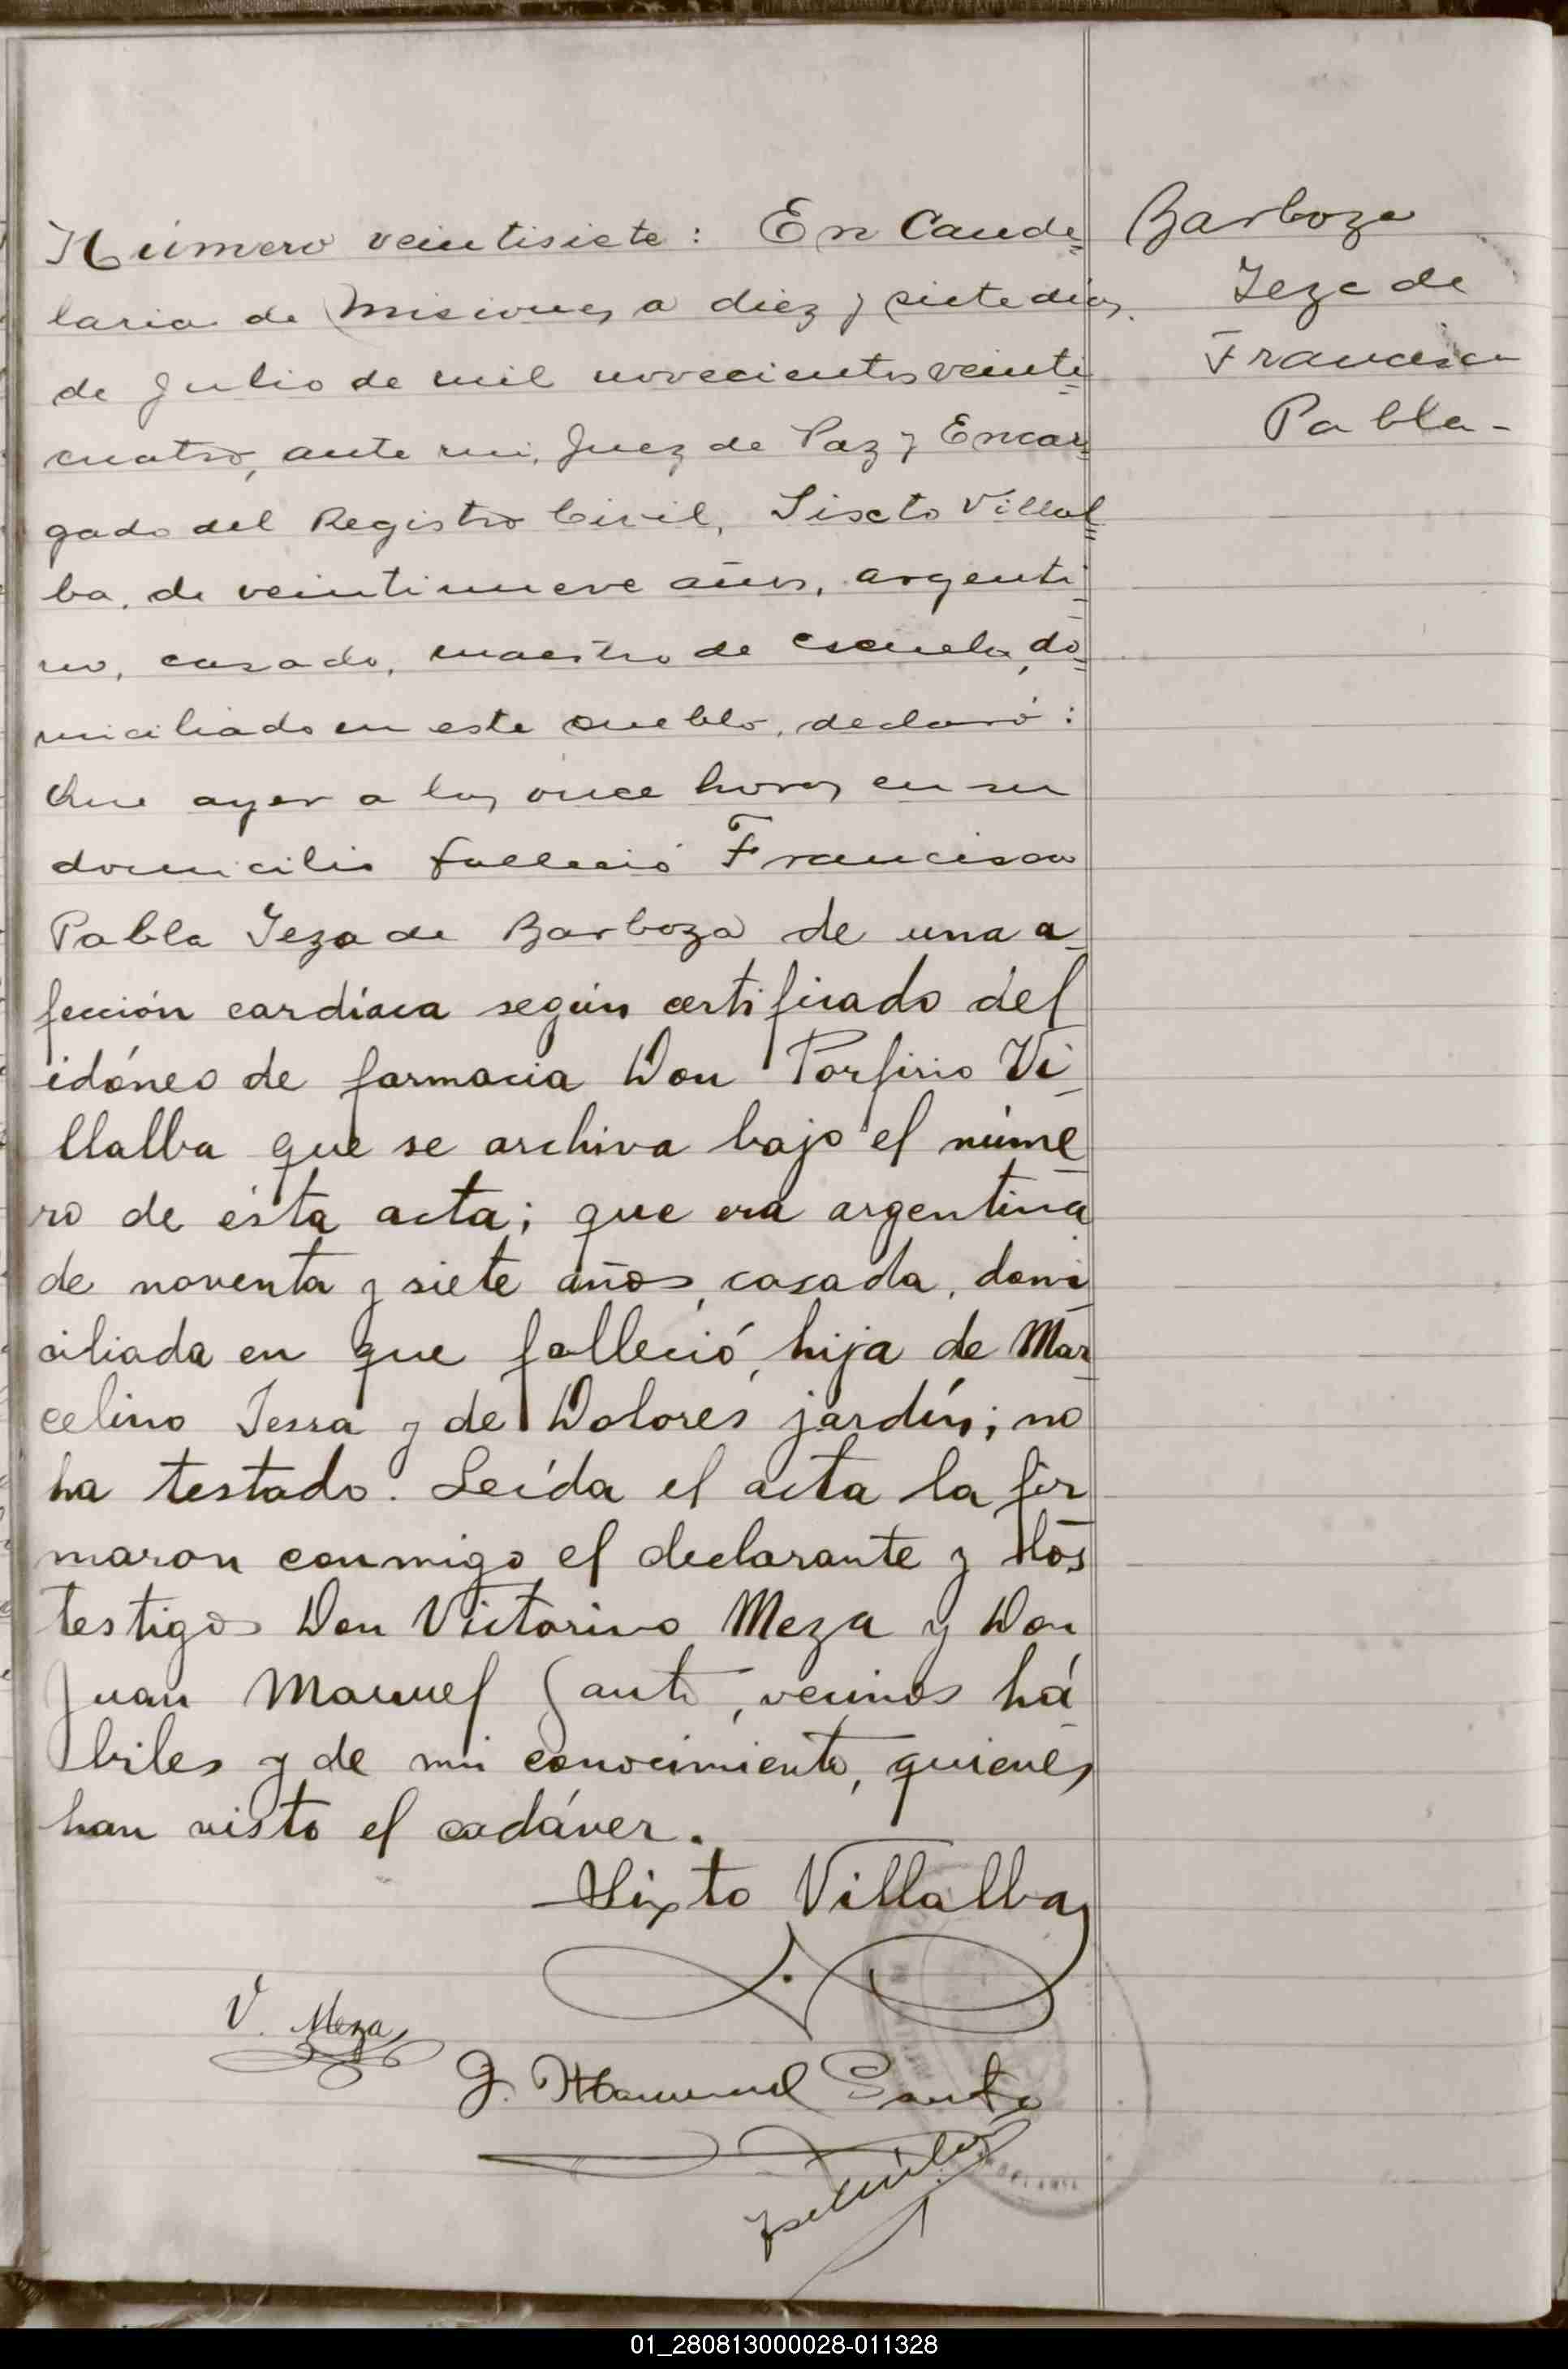 Número veintisiete: En Cande=
laria de Misiones a diez y siete dias
de Julio de mil novecientos veinti=
cuatro, ante mi, Juez de Paz y Encar=
gado del Registro Civil, Siscto Villal=
ba, de veintinueve años, argenti=
no, casado, maestro de escuela, do=
miciliado en este pueblo, declaró:
Que ayer a las once horas en su
domicilio falleció Francisca
Pabla Teza de Barboza de una a-
fección cardíaca según certificado del
idóneo de farmacia Don Porfirio Vi-
llalba que se archiva bajo el núme-
ro de ésta acta; que era argentina
de noventa y siete años, casada, domi-
ciliada en que falleció, hija de Mar-
celino Tessa y de Dolores jardín; no
ha testado. Leída el acta la fir-
maron conmigo el declarante y los
testigos Don Victorino Meza y Don
Juan Manuel Santo, vecinos há-
biles y de mi conocimiento, quienes
han visto el cadáver.
Sixto Villalba
V. Meza
J. Manuel Santo
Barboza
Teza de
Francisca
Pabla-
01_280813000028-011328